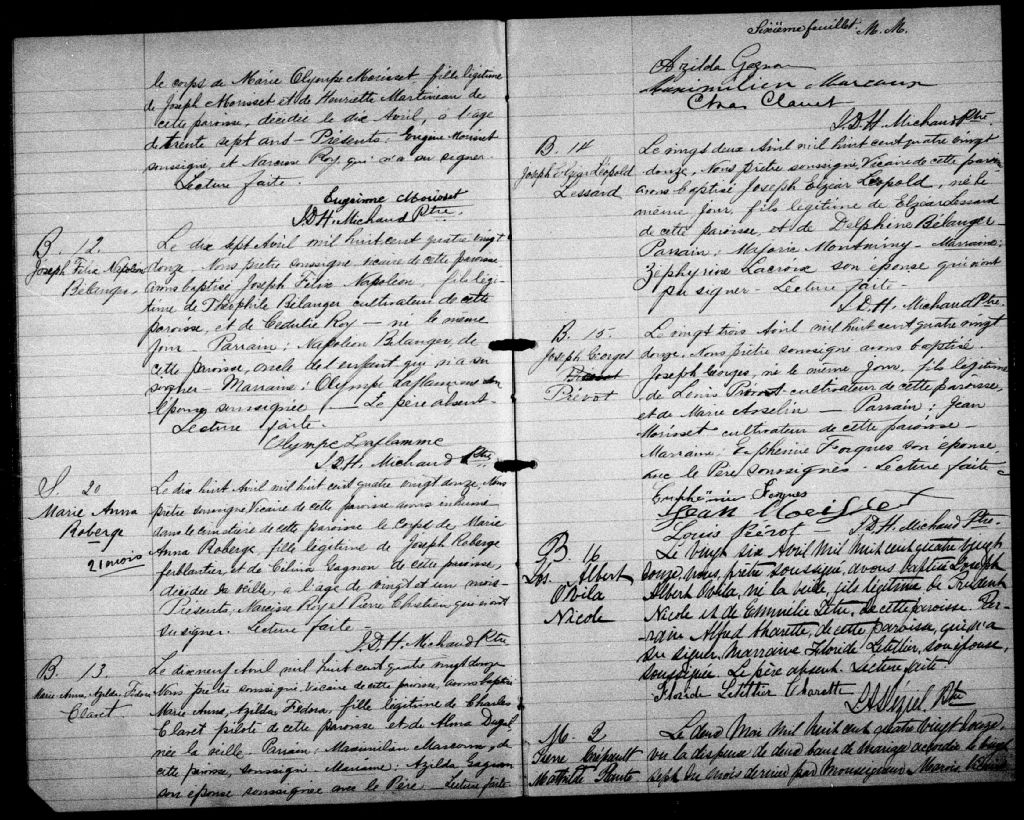 le corps de Marie Olympe Morisset fille légitime
de Joseph Morisset et de Henriette Martineau de
cette paroisse, décédée le dix Avril, à l'age
de trente sept ans - Présents: Eugène Morisset
soussigné, et Narcisse Roy qui n'a su signer.
Lecture faite.
Morisset
J.D.H. Michaud Ptre.
B. 12.
Joseph Félix Napoléon
Bélanger
Le dix sept Avril mil huit cent quatre vingt
douze. Nous prêtre soussigné vicaire de cette paroisse
avons baptisé Joseph Félix Napoléon, fils légi-
time de Théophile Bélanger cultivateur de cette
paroisse, et de Cédulie Roy — né le même
jour - Parrain: Napoléon Bélanger, de
cette paroisse, oncle de l'enfant qui n'a su
signer - Marraine: Olympe Laflamme son
épouse soussignée. — Le père absent -
Lecture faite.
Olympe Laflamme
J.D.H. Michaud Ptre
S. 20
Marie Anna
Roberge
21 mois
Le dix huit Avril mil huit cent quatre vingt douze, Nous
prêtre soussigné Vicaire de cette paroisse avons inhumé
dans le cimetière de cette paroisse le corps de Marie
Anna Roberge, fille légitime de Joseph Roberge
ferblantier, et de Célina Gagnon de cette paroisse,
décédée la veille, à l'age de vingt et un mois -
Présents, Narcisse Roy et Pierre Chrétien qui n'ont
su signer. Lecture faite -
J.D.H. Michaud Ptre
B. 13.
Marie Anna, Azilda, Fédora
Claret.
Le dix neuf Avril mil huit cent quatre vingt douze
Nous prêtre soussigné vicaire de cette paroisse, avons baptisé
Marie Anna, Azilda, Fédora, fille légitime de Charles
Claret pilote de cette paroisse et de Alma Dugal
née la veille - Parrain: Maximilien Marcoux, de
cette paroisse, soussigné Marraine: Azilda Gagnon
son épouse soussignée avec le Père. Lecture faite.
Sixième feuillet. M. M.
Azilda Gagnon
Maximilien Marcoux
Chas Claret
J.D.H. Michaud Ptre.
B. 14
Joseph Elzéar Léopold
Lessard
Le vingt deux Avril mil huit cent quatre vingt
douze, Nous prêtre soussigné, Vicaire de cette paroisse
avons baptisé Joseph Elzéar Léopold, né le
même jour, fils légitime de Elzéar Lessard
de cette paroisse, et de Delphine Bélanger -
Parrain: Majorie Montminy - Marraine:
Zéphyrine Lacroix son épouse qui n'ont
pu signer - Lecture faite -
J.D.H. Michaud Ptre.
B. 15.
Joseph Georges
Prévot
Le vingt trois Avril mil huit cent quatre vingt
douze. Nous prêtre soussigné avons baptisé
Joseph Georges, né le même jour, fils légitime
de Louis Provost cultivateur de cette paroisse,
et de Marie Asselin — Parrain: Jean
Morisset cultivateur de cette paroisse -
Marraine: Euphémie Forgues son épouse
avec le Père soussignés - Lecture faite
Euphémie Forgues
Jean Morisset
Louis Pérot
J.D.H. Michaud Ptre
B. 16
Jos. Albert
Ovila
Nicole
Le vingt six Avril mil huit cent quatre vingt
douze, nous, prêtre soussigné, avons baptisé Joseph
Albert Ovila, né la veille, fils légitime de
Nicole et de de cette paroisse. Par-
rain Alfred Charette, de cette paroisse, qui n'a
su signer, marraine Floride Letellier, son épouse,
soussignée. Le père absent. Lecture faite
Floride Letellier Charette
Ptre
M. 2
Pierre
Mathilde
Le deux Mai mil huit cent quatre vingt douze
vu la dispense de deux bans de mariage accordée le vingt
sept du mois dernier par Monseigneur Marois